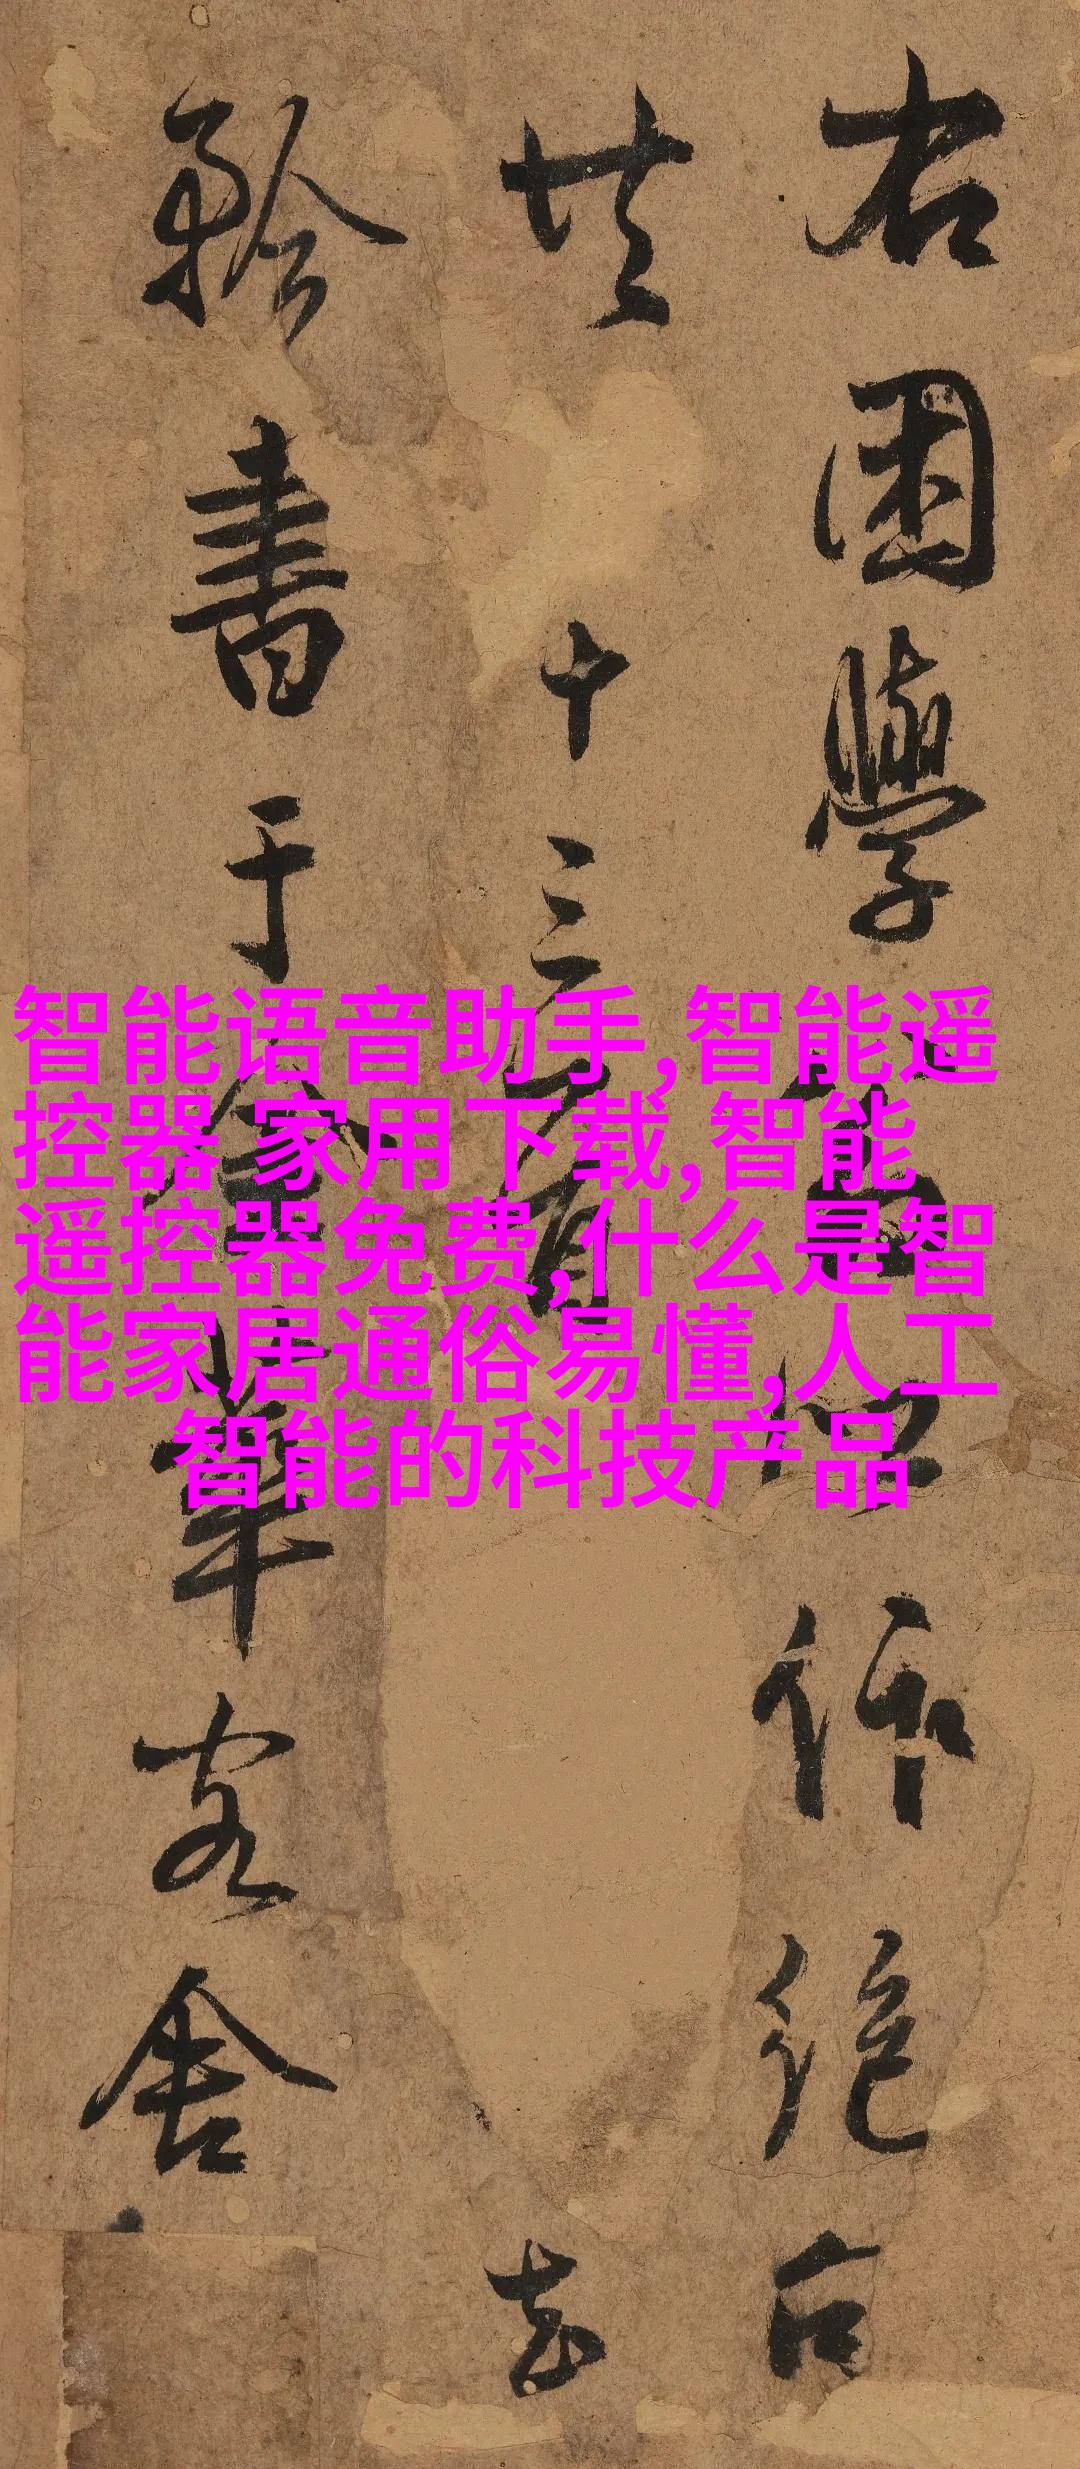 智能语音助手,智能遥
控器 家用下载,智能
遥控器免费,什么是智
能家居通俗易懂,人工
智能的科技产品
右困學作絕句
共十三首
書于金華客舍